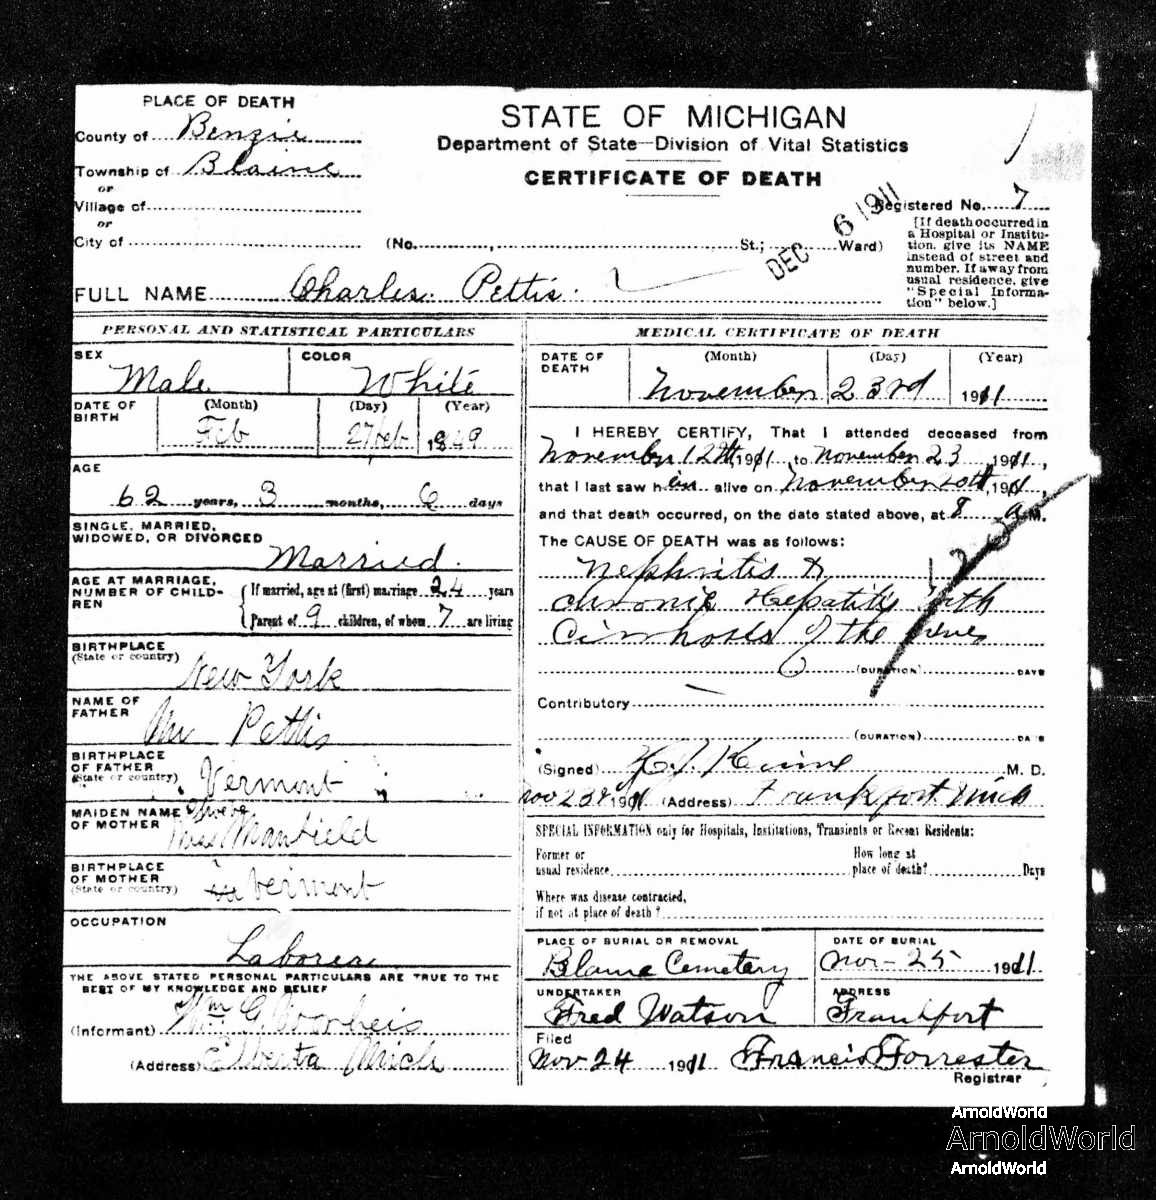 PLACE OF DEATH
County of Benzie
Township of Blaine
or
Village of
or
City of
STATE OF MICHIGAN
Department of State—Division of Vital Statistics
CERTIFICATE OF DEATH
DEC 6 1911
Registered No. 7
(No. , St.; Ward)
[If death occurred in
a Hospital or Institu-
tion, give its NAME
instead of street and
number. If away from
usual residence, give
"Special Informa-
tion" below.]
FULL NAME Charles Pettis
PERSONAL AND STATISTICAL PARTICULARS
SEX Male
COLOR White
DATE OF BIRTH
(Month) (Day) (Year)
Feb 27 Feb 1849
AGE
62 years, 3 months, 6 days
SINGLE, MARRIED,
WIDOWED, OR DIVORCED
Married
AGE AT MARRIAGE,
NUMBER OF CHILD-
REN
If married, age at (first) marriage 24 years
Parent of 9 children, of whom 7 are living
BIRTHPLACE
(State or country)
New York
NAME OF
FATHER
Mr Pettis
BIRTHPLACE
OF FATHER
(State or country)
Vermont
MAIDEN NAME
OF MOTHER
BIRTHPLACE
OF MOTHER
(State or country)
Vermont
OCCUPATION
Laborer
THE ABOVE STATED PERSONAL PARTICULARS ARE TRUE TO THE
BEST OF MY KNOWLEDGE AND BELIEF
(Informant) Wm G. Voorheis
(Address) Elberta Mich
MEDICAL CERTIFICATE OF DEATH
DATE OF
DEATH
(Month) (Day) (Year)
November 23rd 1911
I HEREBY CERTIFY, That I attended deceased from
November 12th, 1911, to November 23, 1911,
that I last saw him alive on November 20th, 1911,
and that death occurred, on the date stated above, at 8 a M.
The CAUSE OF DEATH was as follows:
Nephritis &
Chronic Hepatitis with
Cirrhosis of the liver
120
(DURATION) DAYS
Contributory
(DURATION) DAYS
(Signed) M. D.
Nov 23rd 1911 (Address) Frankfort Mich
SPECIAL INFORMATION only for Hospitals, Institutions, Transients or Recent Residents:
Former or
usual residence
How long at
place of death? Days
Where was disease contracted,
if not at place of death?
PLACE OF BURIAL OR REMOVAL
Blaine Cemetery
DATE OF BURIAL
Nov - 25 1911
UNDERTAKER
Fred Watson
ADDRESS
Frankfort
Filed
Nov 24 1911 Francis Forrester
Registrar
ArnoldWorld
ArnoldWorld
ArnoldWorld